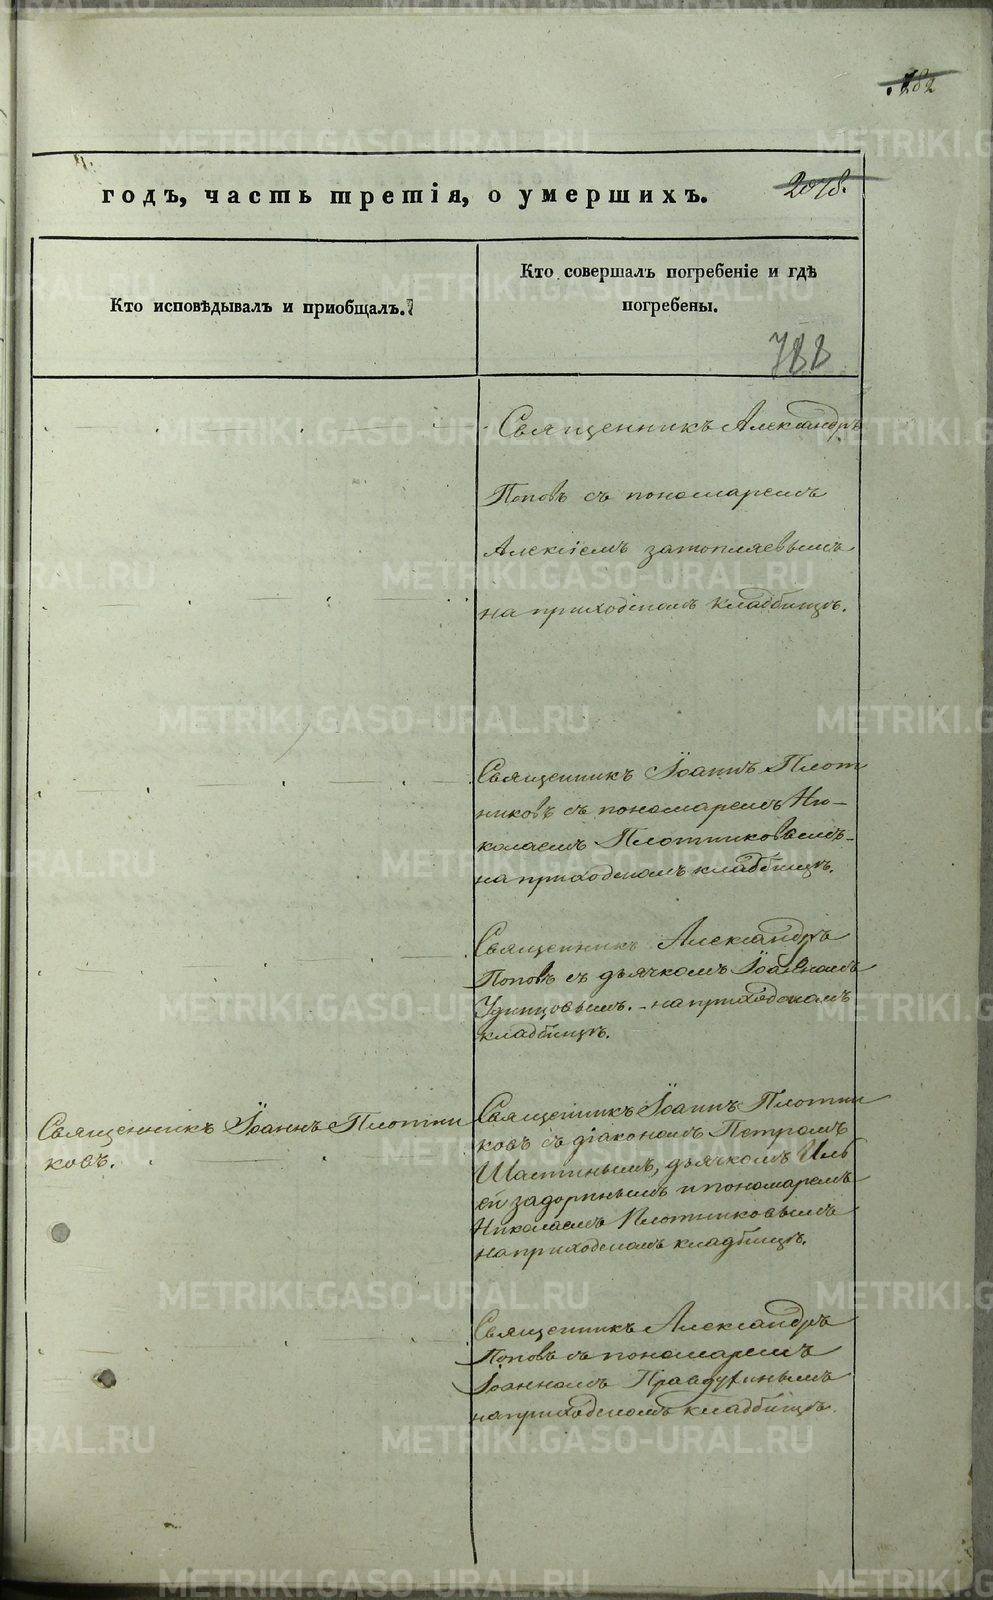 282
годъ, часть третія, о умершихъ.
2078.
Кто исповѣдывалъ и приобщалъ.
Кто совершалъ погребеніе и гдѣ
погребены.
788
Священникъ Александръ
Поповъ съ пономаремъ
Алексіемъ Затопляевымъ
на приходскомъ кладбищѣ.
Священникъ Іоаннъ Плот
никовъ съ пономаремъ Ни-
колаемъ Плотниковымъ
на приходскомъ кладбищѣ.
Священникъ Александръ
Поповъ съ дьячкомъ Іоанномъ
Удинцовымъ. - на приходскомъ
кладбищѣ.
Священникъ Іоаннъ Плотни
ковъ.
Священникъ Іоаннъ Плотни
ковъ съ діакономъ Петромъ
Шастинымъ, дьячкомъ Иль
ей Задоринымъ и пономаремъ
Николаемъ Плотниковымъ
на приходскомъ кладбищѣ.
Священникъ Александръ
Поповъ съ пономаремъ
Іоанномъ
на приходскомъ кладбищѣ.
METRIKI.GASO-URAL.RU